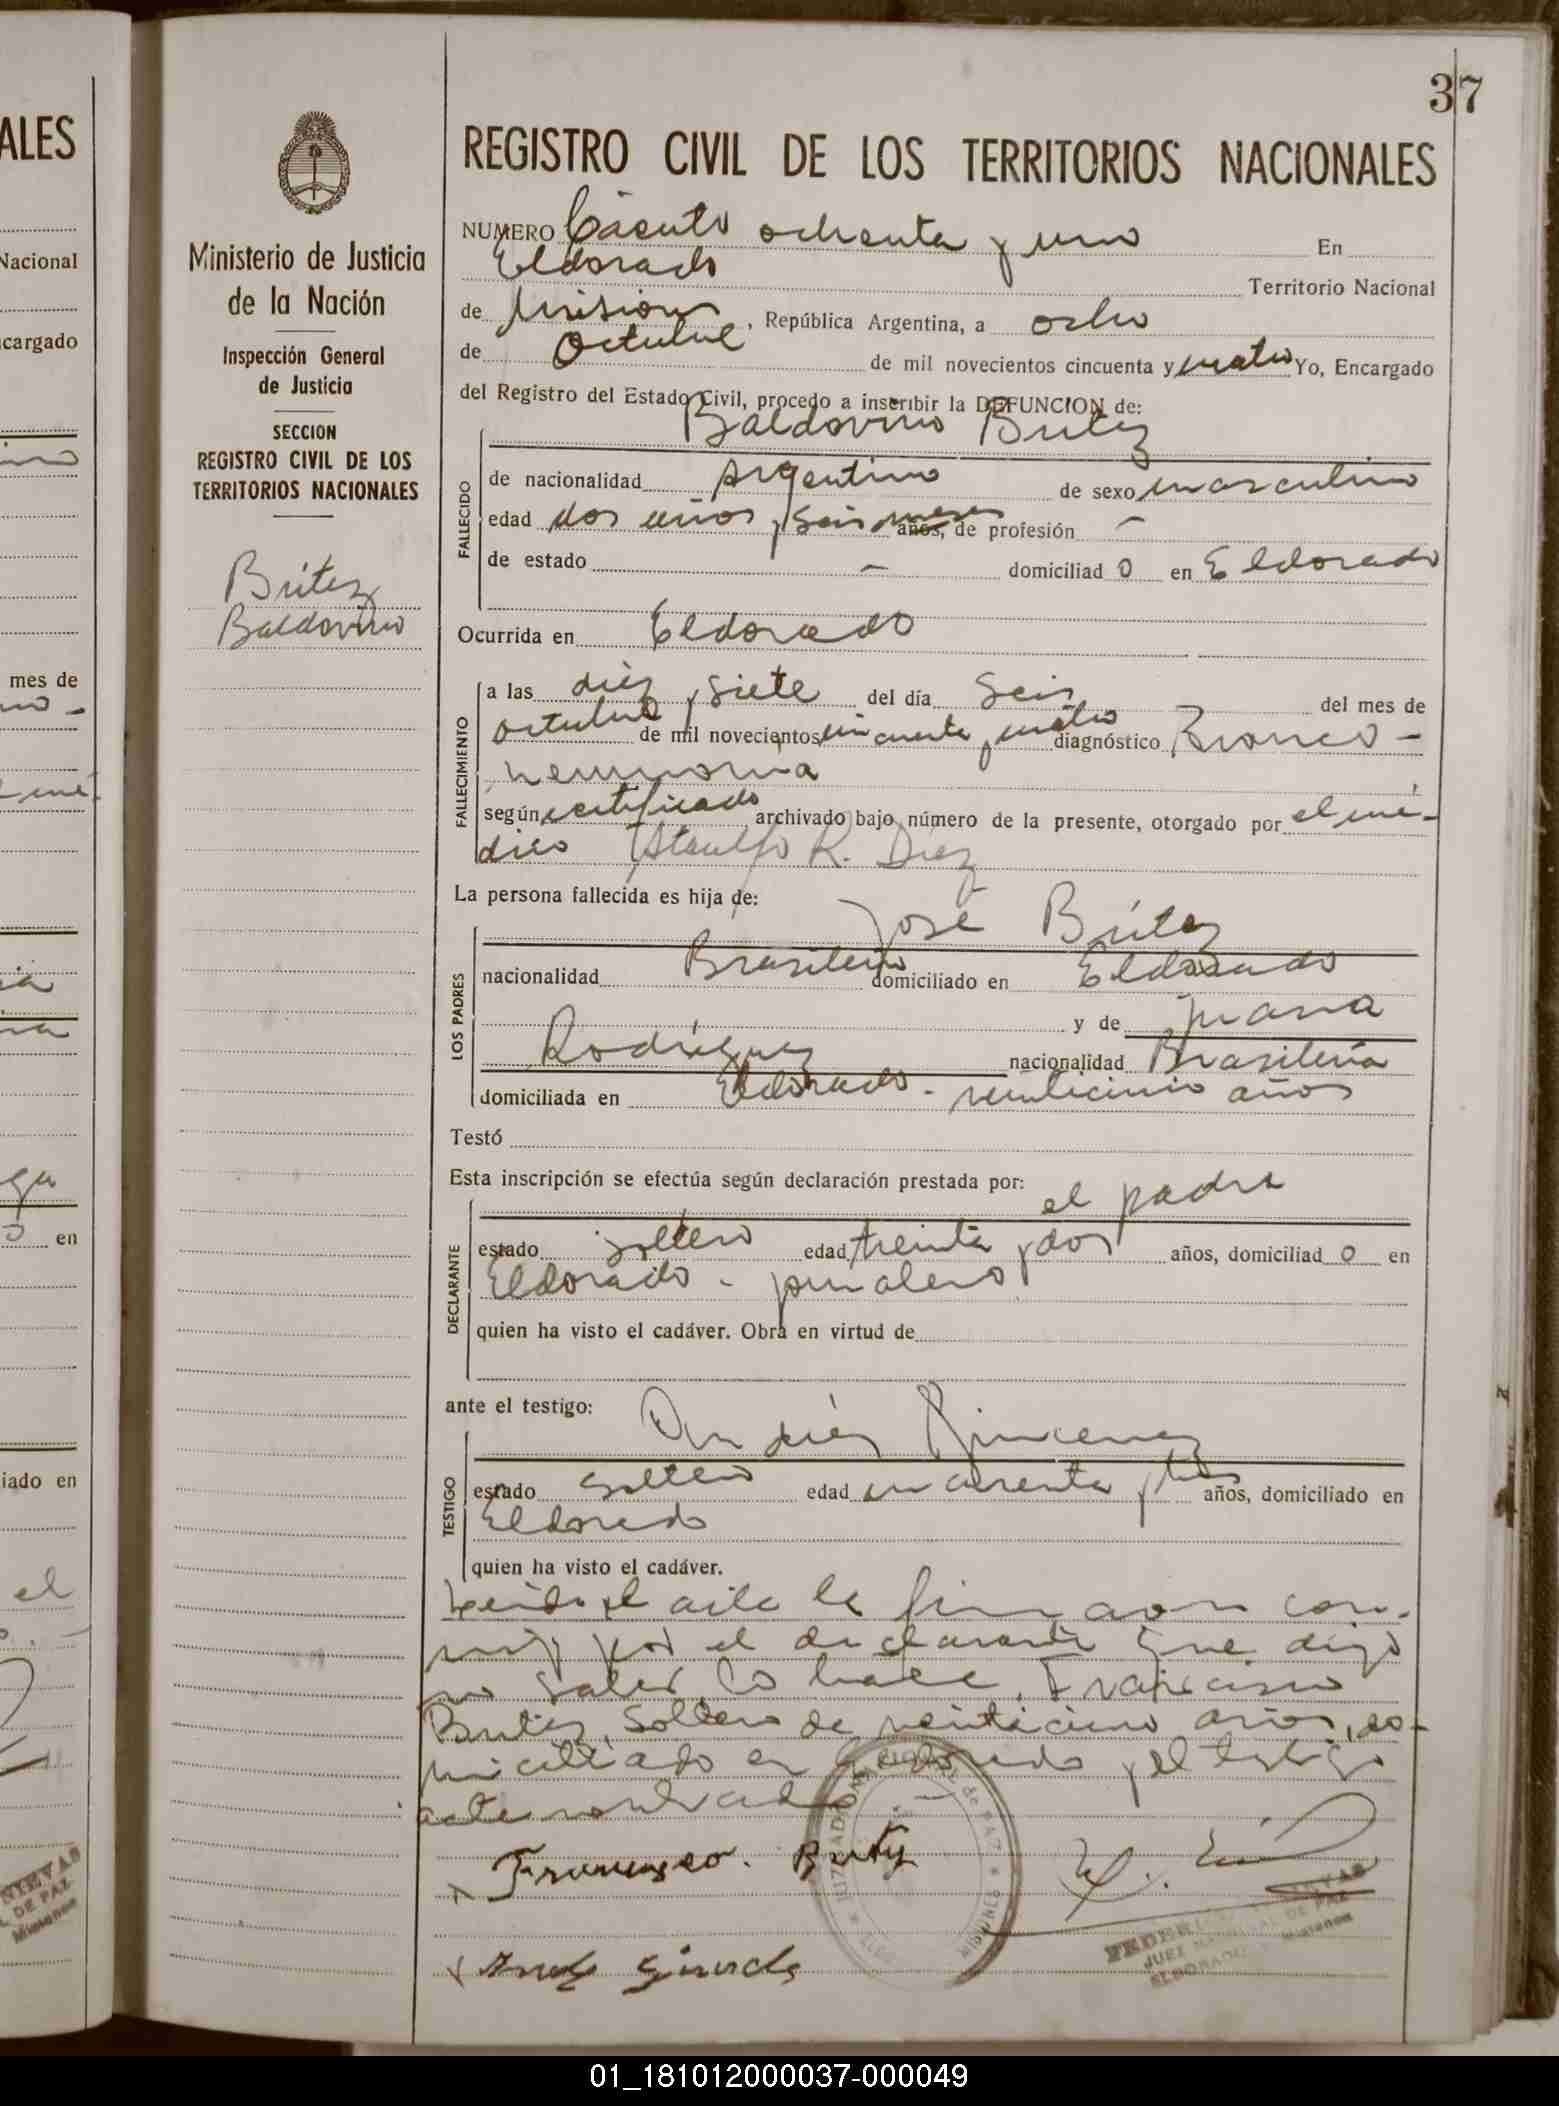 37
REGISTRO CIVIL DE LOS TERRITORIOS NACIONALES
Ministerio de Justicia
de la Nación
Inspección General
de Justicia
SECCION
REGISTRO CIVIL DE LOS
TERRITORIOS NACIONALES
Brítez
Baldovino
NUMERO Ciento ochenta y uno En
Eldorado Territorio Nacional
de Misiones, República Argentina, a ocho
de Octubre de mil novecientos cincuenta y cuatro Yo, Encargado
del Registro del Estado Civil, procedo a inscribir la DEFUNCION de:
Baldovino Britez
FALLECIDO
de nacionalidad Argentino de sexo masculino
edad dos años y seis meses años, de profesión —
de estado — domiciliad o en Eldorado
Ocurrida en Eldorado
FALLECIMIENTO
a las diez y siete del día seis del mes de
octubre de mil novecientos cincuenta y cuatro diagnóstico Bronco-
neumonia
según certificado archivado bajo número de la presente, otorgado por el mé-
dico Ataulfo R. Diez
La persona fallecida es hija de:
LOS PADRES
José Brítez
nacionalidad Brasileño domiciliado en Eldorado
y de Juana
Rodríguez nacionalidad Brasileña
domiciliada en Eldorado - veinticinco años
Testó
Esta inscripción se efectúa según declaración prestada por:
el padre
DECLARANTE
estado soltero edad treinta y dos años, domiciliad o en
Eldorado -
quien ha visto el cadáver. Obra en virtud de
ante el testigo:
Andrés Gimenez
TESTIGO
estado soltero edad cuarenta y tres años, domiciliado en
Eldorado
quien ha visto el cadáver.
Leida el acta la firmaron con-
migo por el declarante que dijo
no saber lo hace Francisco
Britez, soltero de veinticinco años, do-
miciliado en Eldorado y el testigo
ante nombrado
Francisco Brity
JUEZ NACIONAL DE PAZ
ELDORADO Misiones
JUZGADO NACIONAL de PAZ
MISIONES
ALES
Nacional
cargado
mes de
en
iado en
el
NIEVAS
DE PAZ
Misiones
01_181012000037-000049